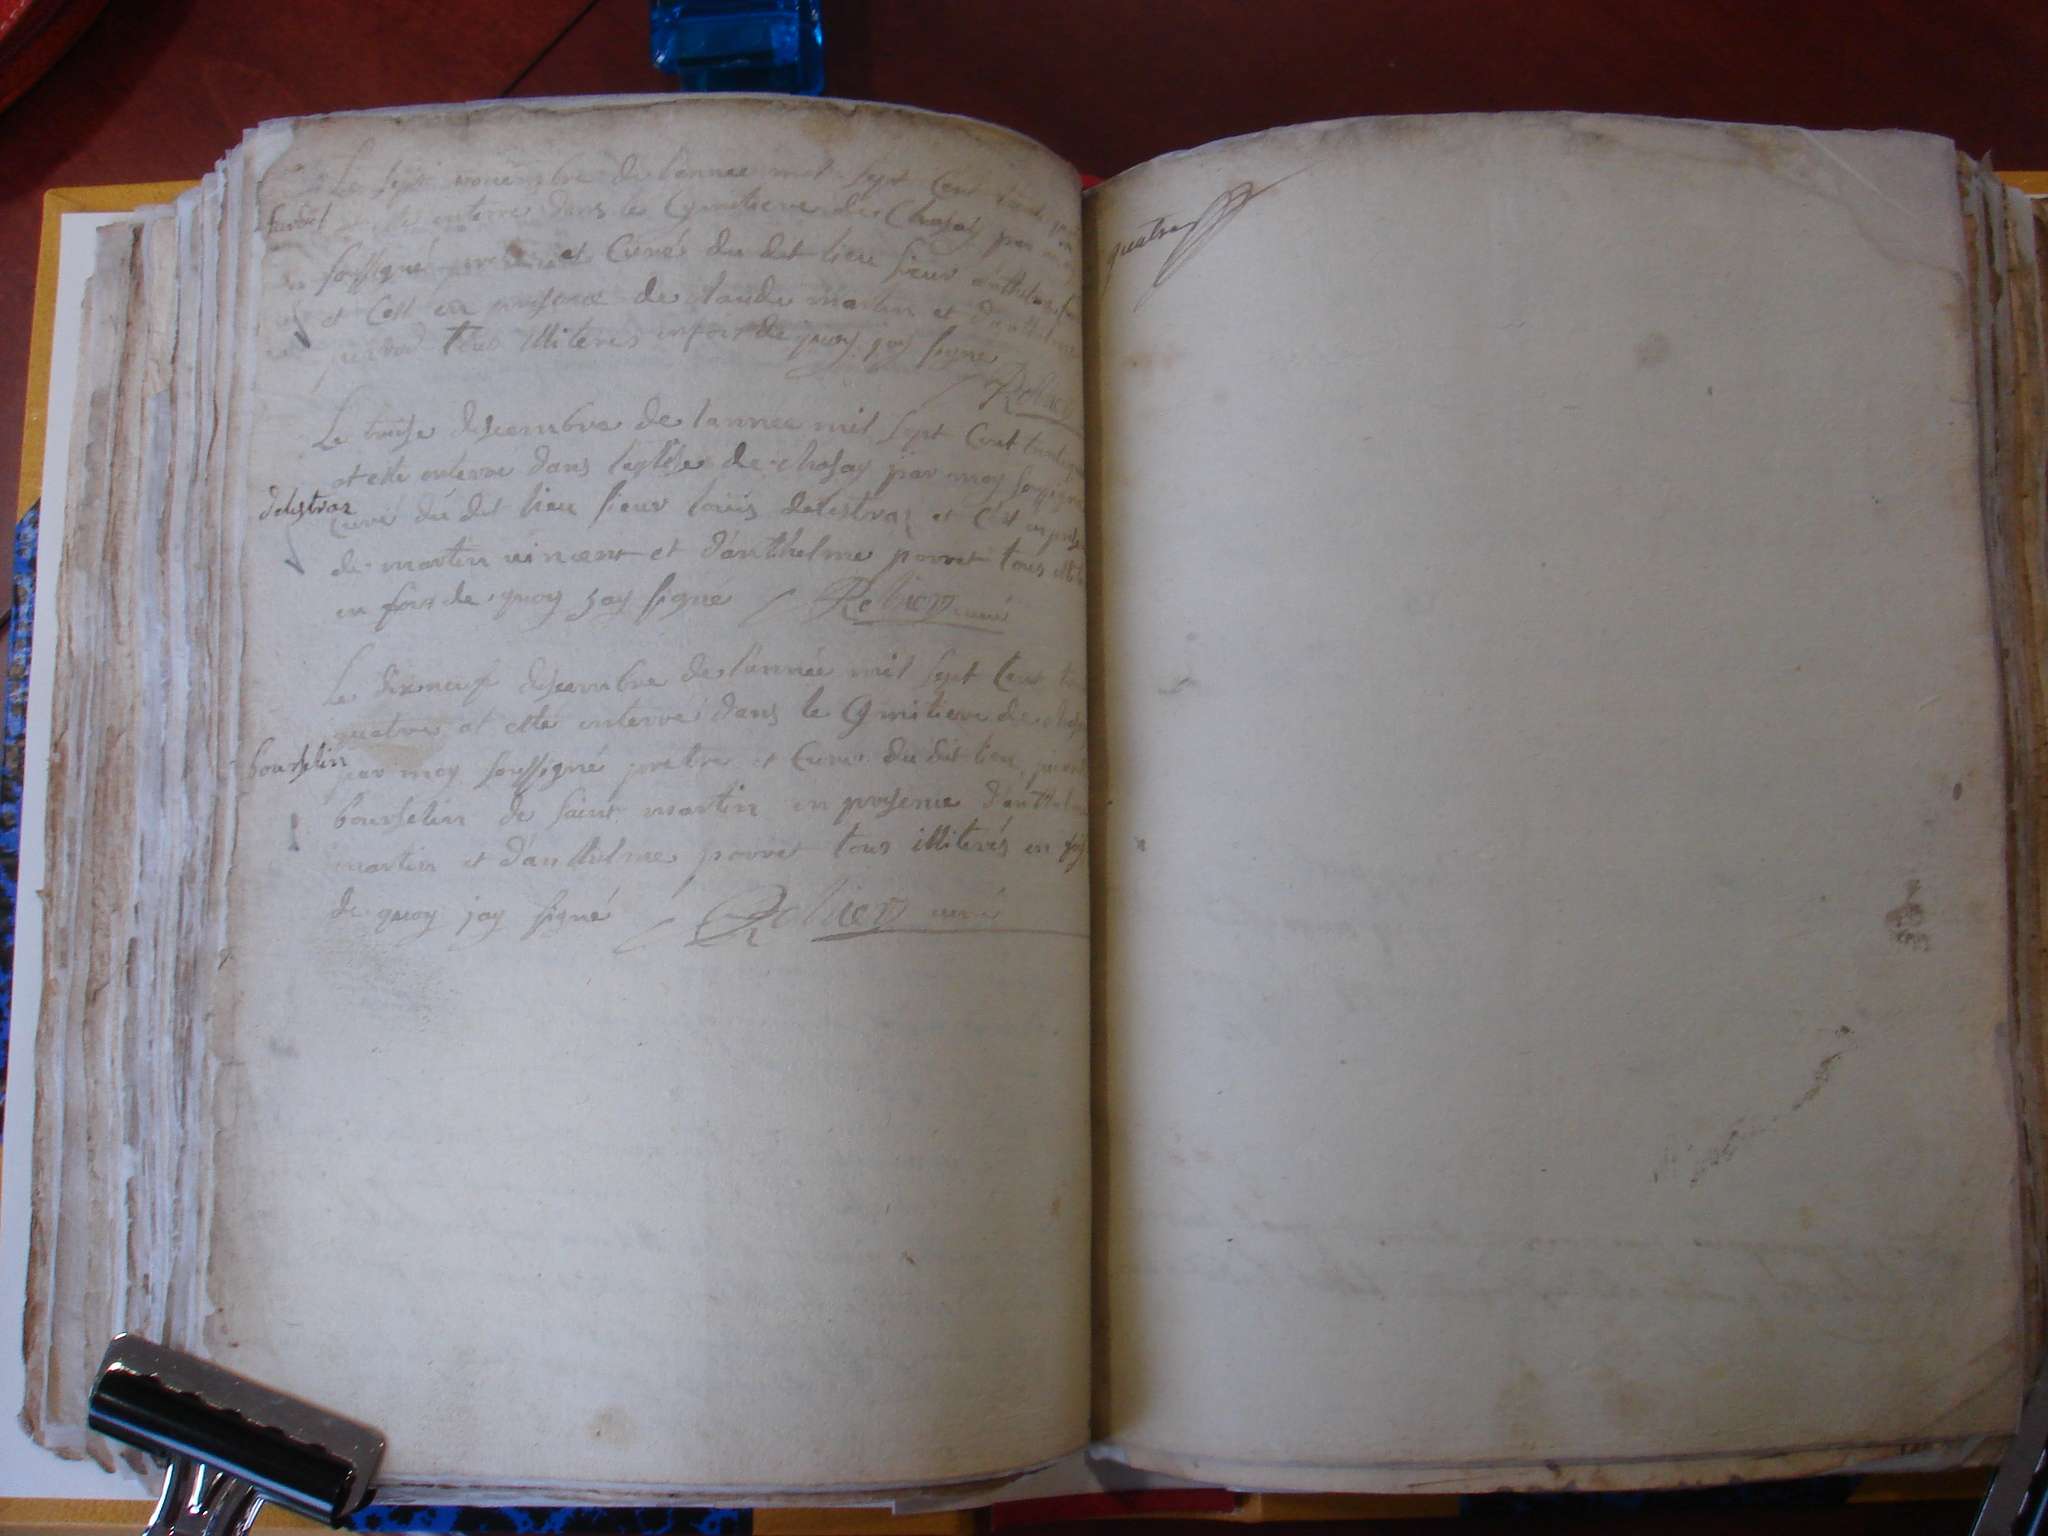 Le sept nouembre de l'annee mil sept Cent
enterre dans le Cymitiere de Chasay par moy
soussigné et Curé du dit lieu sieur
et C'est en presence de claude martin et d'anthelme
tous illiteres en foy de quoy jay signe
Rollier
Le treise descembre de lannee mil sept Cent
at este enterre dans leglise de chasay par moy soussigne
delestraz
Curé du dit lieu sieur louis delestraz et C'est en
de martin uincent et d'anthelme porret tous
en foy de quoy jay signe Rollier curé
Le dixneuf descembre de l'année mil sept Cent
quatre at este enterré dans le Cymitiere de
bourselin
par moy soussigné prebtre et Curé du dit lieu
bourselin de saint martin en presence d'anthelme
martin et d'anthelme porret tous illiterés en foy
de quoy jay signé Rollier curé
quatre